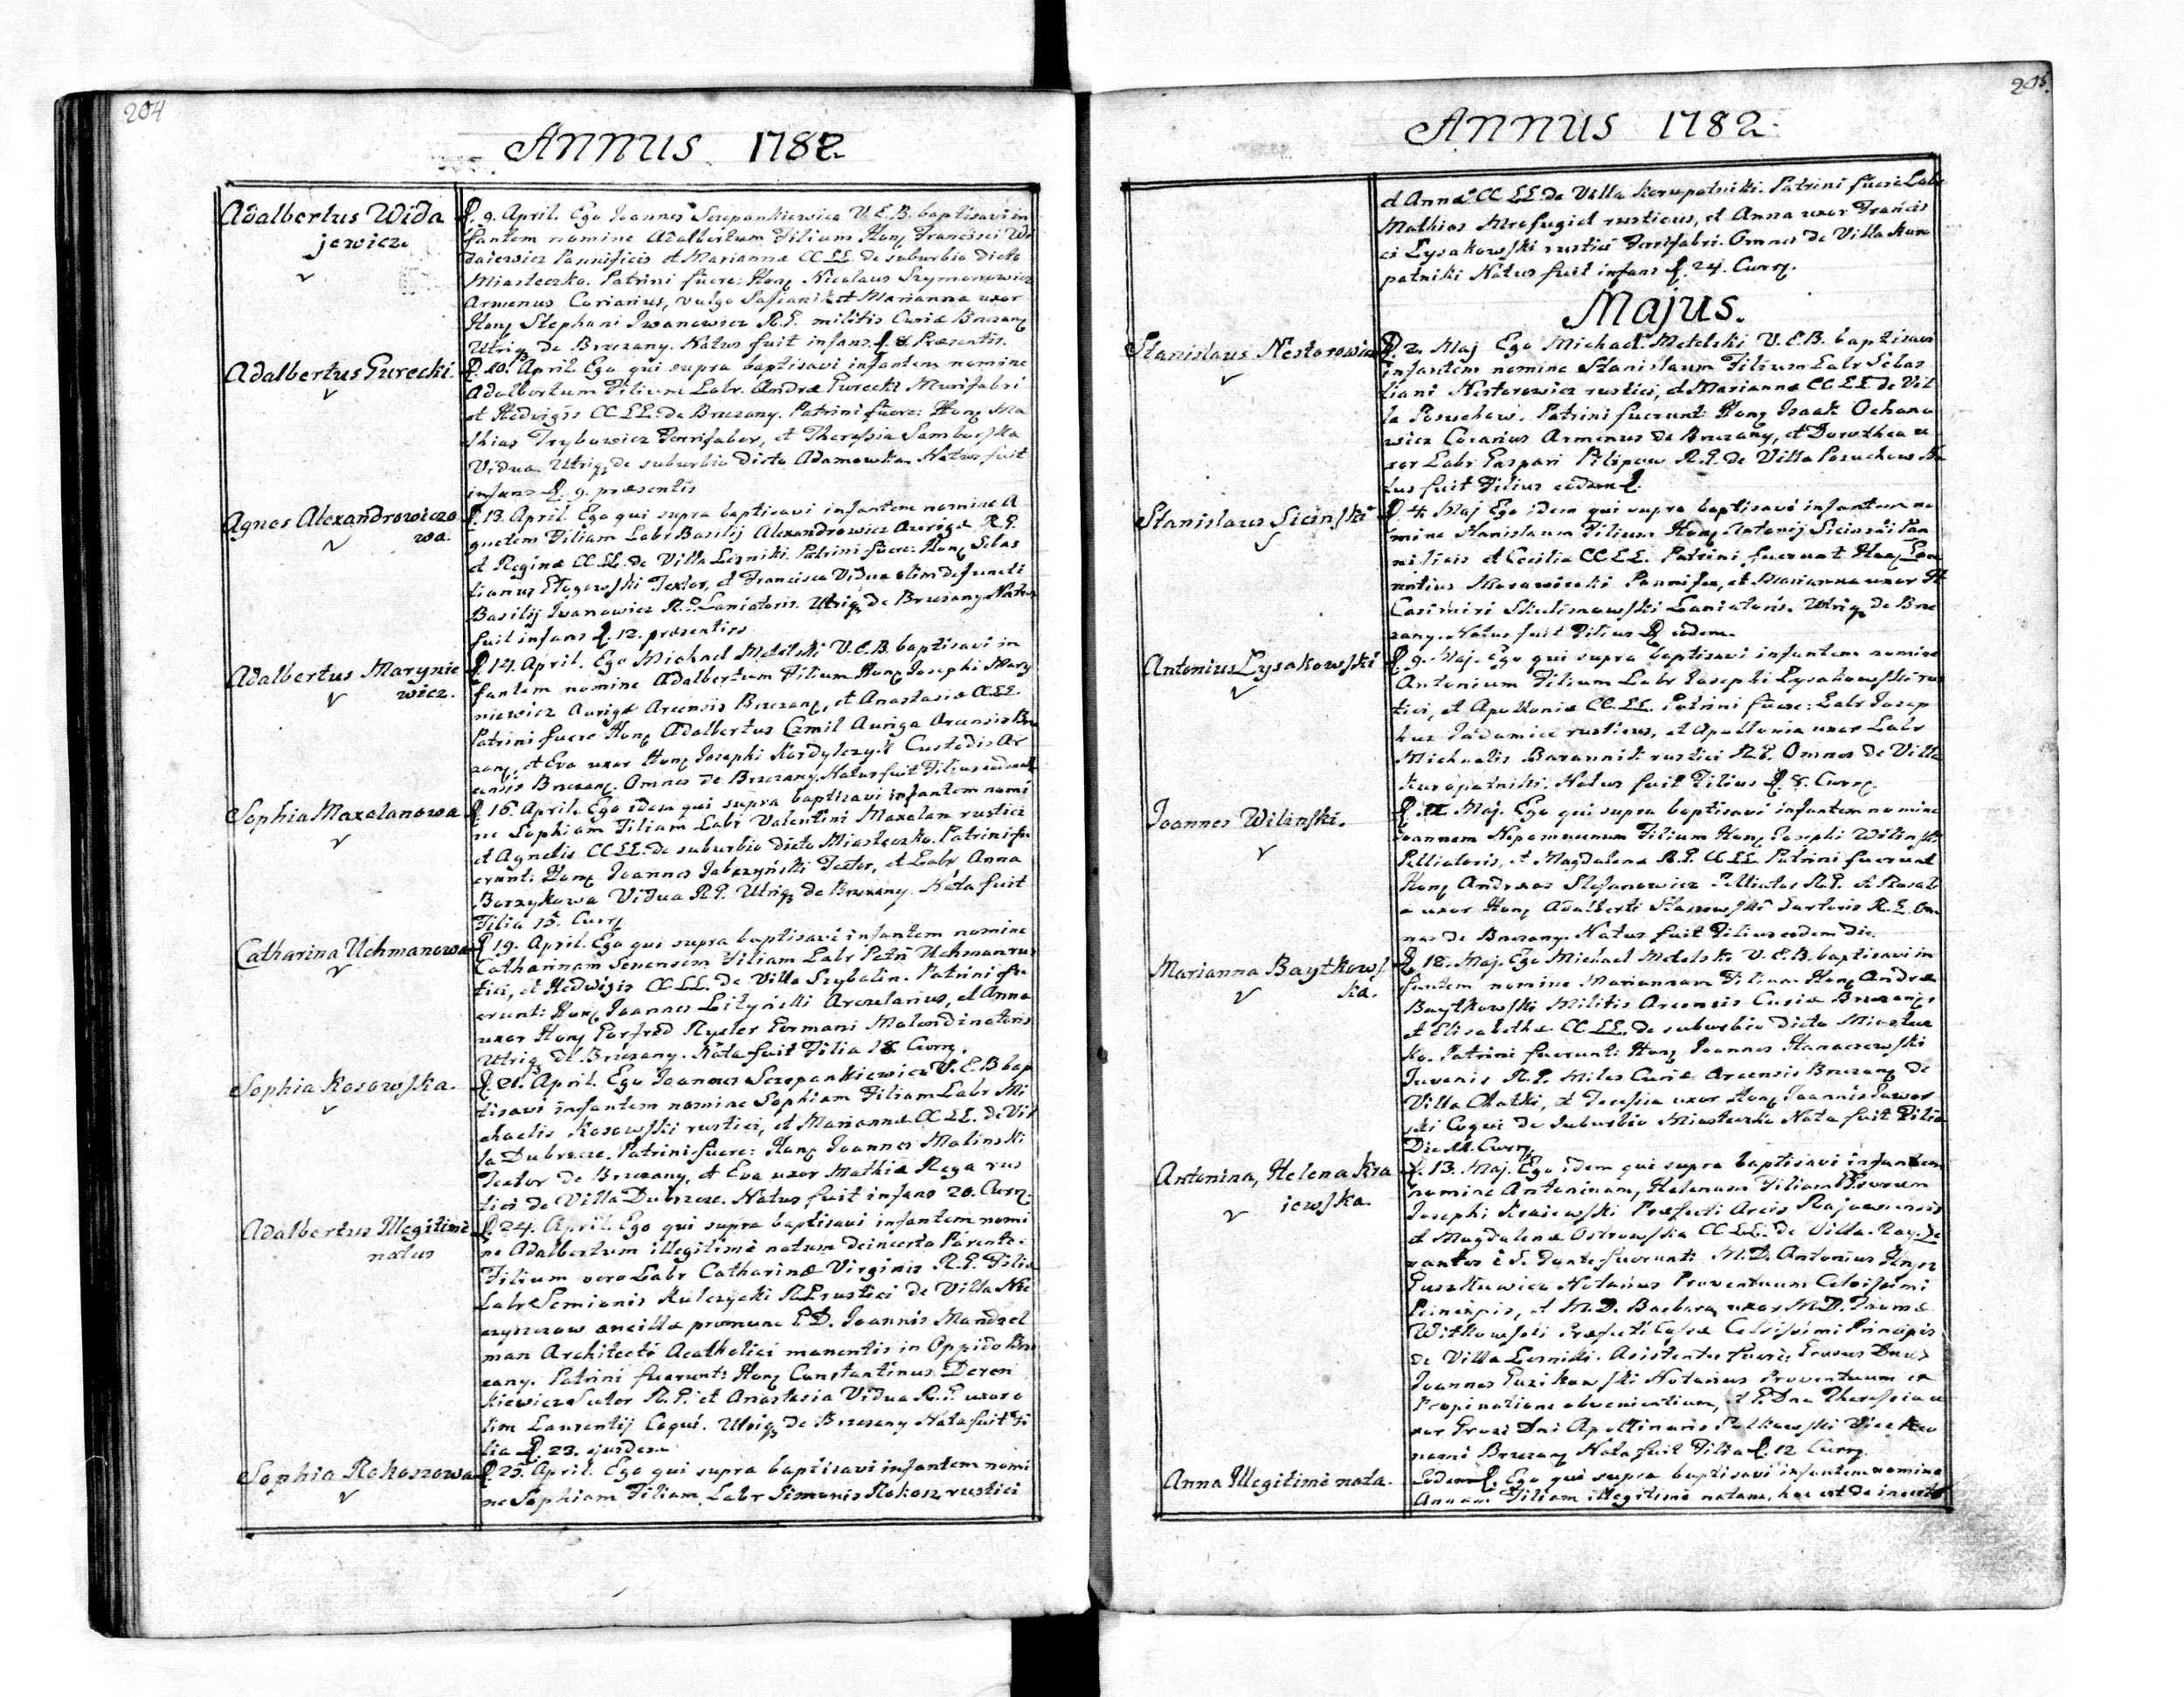 204
ANNUS 1782
Adalbertus Wida
jewicz.
D. 9. April. Ego Joannes Sczepankiewicz V.E.B. baptisavi in
fantem nomine Adalbertum Filium Hon Francisci Wi
daiewicz Pannificis et Marianna CC LL. de suburbio dicto
Miasteczko. Patrini fuere: Hon Nicolaus Szymonowicz
Armenus Coriarius, vulgo Safianik et Marianna uxor
Hon Stephani Iwanowicz R.G. militis Curiæ Brzezan
Utriq de Brzezany. Natus fuit infans D. 8. Præsentis.
Adalbertus Gurecki.
D. 10. April. Ego qui supra baptisavi infantem nomine
Adalbertum Filium Labr. Andreæ Gurecki Murifabri
et Hedvigis CC LL. de Brzezany. Patrini fuere: Hon Ma
thias Trybowicz Ferrifaber, et Theressia Samborska
Vidua. Utriq de suburbio dicto Adamowka. Natus fuit
infans D. 9. præsentis
Agnes Alexandrowiczo
wa.
D. 13. April. Ego qui supra baptisavi infantem nomine A
gnetem Filiam Labr Basilij Alexandrowicz Aurigæ R.G.
et Reginæ CC LL. de Villa Lesniki. Patrini fuere: Hon Sebas
tianus Textor, et Francisca Vidua olim defuncti
Basilij Iwanowicz R.G. Laniatoris. Utriq de Brzezany Natus
fuit infans D. 12. præsentis
Adalbertus Marynie
wicz.
D. 14. April. Ego Michael Metelski V.C.B. baptisavi in
fantem nomine Adalbertum Filium Hon Josephi Mary
niewicz Aurigæ Arcensis Brzezan, et Anastasiæ CC LL.
Patrini fuere Hon Adalbertus Czmil Auriga Arcensis Brze
zan, et Eva uxor Hon Josephi Kordylczyk Custodis Ar
censis Brzezan. Omnes de Brzezany. Natus fuit Filius eodem D
Sophia Maxelanowa
D. 16. April. Ego idem qui supra baptisavi infantem nomi
ne Sophiam Filiam Labr Valentini Maxelan rustici
et Agnetis CC LL. de suburbio dicto Miasteczko. Patrini fu
erunt: Hon Joannes Jabczyński Textor, et Labr Anna
Borzykowa Vidua R.G. Utriq de Brzezany. Nata fuit
Filia 15. Curr
Catharina Uchmanowa
D. 19. April. Ego qui supra baptisavi infantem nomine
Catharinam Senensem Filiam Labr Petri Uchman rus
tici, et Hedwigis CC LL. de Villa Szybalin. Patrini fu
erunt: Hon Joannes Lityński Arcularius, et Anna
uxor Hon Gorfred Ryster Germani Molendinatoris
Utriq de Brzezany. Nata fuit Filia 18. Curr.
Sophia Kosowska.
D. 21. April. Ego Joannes Sczepankiewicz V.E.B bap
tisavi infantem nomine Sophiam Filiam Labr Mi
chaelis Kosowski rustici, et Mariannæ CC LL. de Vil
la Dubszcze. Patrini fuere: Hon Joannes Malinski
Textor de Brzezany, et Eva uxor Mathiæ Rega rus
tici de Villa Dubszcze. Natus fuit infans 20. Curr.
Adalbertus Illegitimè
natus
D. 24. April. Ego qui supra baptisavi infantem nomi
ne Adalbertum illegitimè natum de incerto Parente.
Filium vero Labr Catharinæ Virginis R.G. Filiæ
Labr Semionis Kulczycki R.G. rustici de Villa
ancillæ pronunc G.D. Joannis Mandzel
man Architecti Acatholici manentis in Oppido Brze
zany. Patrini fuerunt: Hon Constantinus Deren
kiewicz Sutor R.G. et Anastasia Vidua R.G uxor o
lim Laurentij Coqui. Utriq de Brzezany Nata fuit Fi
lia D. 23. ejusdem
Sophia Rokoszowa
D. 25. April. Ego qui supra baptisavi infantem nomi
ne Sophiam Filiam Labr Simonis Rokosz rustici
205.
ANNUS 1782.
et Annæ CC LL. de Villa Kuropatniki. Patrini fuere Labr
Mathias rusticus, et Anna uxor Francis
ci Lysakowski rustici Ferrifabri. Omnes de Villa Kuro
patniki Natus fuit infans D. 24. Curr.
Majus.
Stanislaus Nestorowicz
D. 2. Maj Ego Michael Metelski V.C.B. baptisavi
infantem nomine Stanislaum Filium Labr Sebas
tiani Nestorowicz rustici, et Mariannæ CC LL. de Vil
la Posuchow. Patrini fuerunt: Hon Isaak Ochano
wicz Coriarius Armenus de Brzezany, et Dorothea u
xor Labr Gaspari Pilipow R.G. de Villa Posuchow Na
tus fuit Filius eadem D.
Stanislaus Sicinski
D. 4. Maj Ego idem qui supra baptisavi infantem no
mine Stanislaum Filium Hon Antonij Sicinski Pan
nificis et Cecilia CC LL. Patrini fuerunt Hon Lau
rentius Morawiecki Pannifex, et Marianna uxor H
Casimiri Laniatoris. Utriq de Brze
zany. Natus fuit Filius D eodem.
Antonius Lysakowski
D. 9. Maj. Ego qui supra baptisavi infantem nomine
Antonium Filium Labr Josephi Lysakowski rus
tici, et Apolloniæ CC. LL. Patrini fuere: Labr Josep
hus Jadamicz rusticus, et Apollonia uxor Labr
Michaelis Barannik rustici R.G. Omnes de Villa
Kuropatniki. Natus fuit Filius D. 8. Curr.
Joannes Wilinski.
D. Maj. Ego qui supra baptisavi infantem nomine
Joannem Nepomucenum Filium Hon Josephi Wilinski
Pelliatoris, et Magdalenæ R.G. CC LL. Patrini fuerunt
Hon Andreas Stefanowicz Pelliator R.G. et Rosali
a uxor Hon Adalberti Staszowski Sartoris R.G. Om
nes de Brzezany. Natus fuit Filius eodem die.
Marianna Baytkows
ka.
D. 12. Maj. Ego Michael Metelski V.C.B. baptisavi in
fantem nomine Mariannam Filiam Hon Andreæ
Baytkowski Militis Arcensis Curiæ Brzezan
et Elisabethæ CC LL. de suburbio dicto Miastecz
ko. Patrini fuerunt: Hon Joannes Hanaczewski
Juvenis R.G. Miles Curiæ Arcensis Brzezan de
Villa Chatki, et Teressia uxor Hon Joannis Jawor
ski Coqui de Suburbio Miasteczko Nata fuit Filia
Die 11. Curr.
Antonina, Helena Kra
iewska.
D. 13. Maj. Ego idem qui supra baptisavi infantem
nomine Antoninam, Helenam Filiam
Josephi Kraiewski Præfecti Arcis
et Magdalenæ Ostrowska CC LL. de Villa Ray. Le
vantes è S. Fonte fuerunt: M.D. Antonius
Notarius Proventuum Celsissimi
Principis, et M.D. Barbara uxor M.D.
Witkowski Præfecti Cassæ Celsissimi Principis
de Villa Lesniki. Asistentes fuere:
Joannes Guzikowski Notarius Proventuum ex
Propinatione obvenientium, et G.Dna Theressia u
xor Dni Apollinaris
Brzezan Nata fuit Filia D. 12 Curr.
Anna Illegitimè nata.
Eodem D. Ego qui supra baptisavi infantem nomine
Annam Filiam illegitimè natam, hoc est de incerto